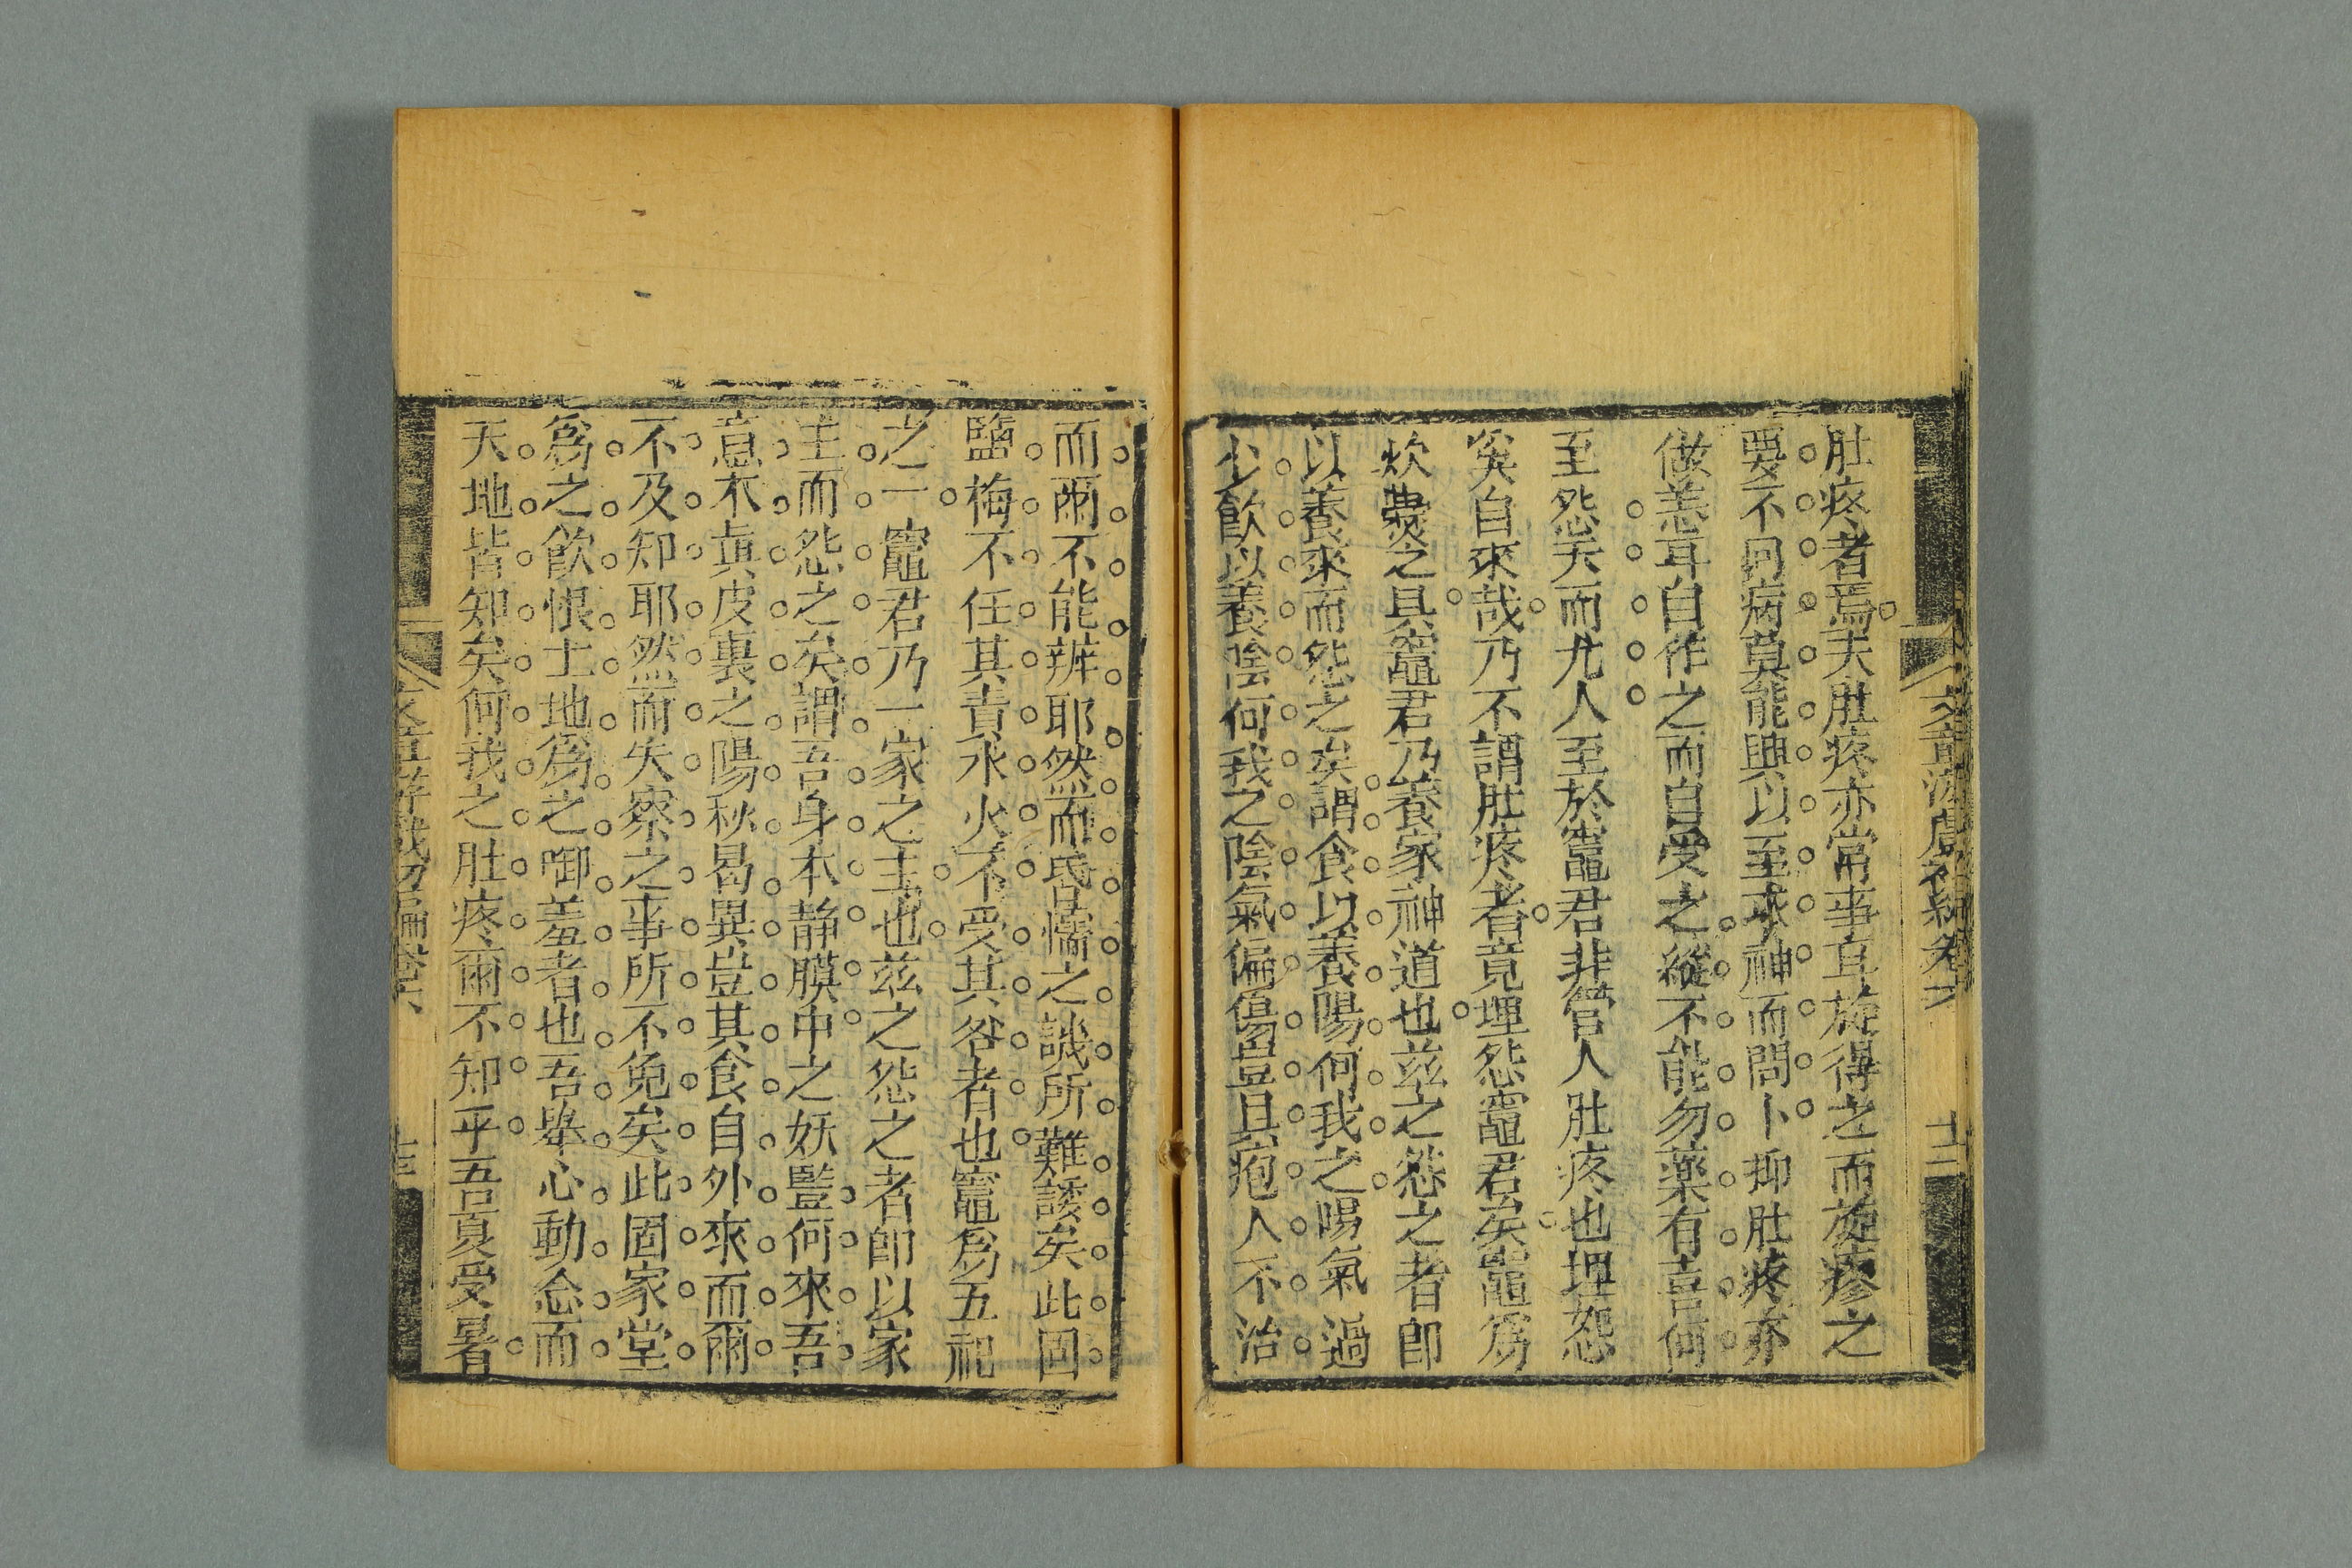 肚疼者焉夫肚疼亦常事耳旋得之而旋瘳之
要不因病莫能興以至求神而問卜抑肚疼亦
做恙耳自作之而自受之縱不能勿藥有喜何
至怨天而尤人至於竈君非管人肚疼也埋怨
奚自來哉乃不謂肚疼者竟埋怨竈君矣竈為
炊爨之具竈君乃養家神道也茲之怨之者卽
以養來而怨之矣謂食以養陽何我之陽氣過
少飲以養陰何我之陰氣偏傷豈且庖人不治
而爾不能辨耶然而昏懦之譏所難諉矣此固
鹽梅不任其責水火不受其咎者也竈為五祀
之一竈君乃一家之主也茲之怨之者卽以家
主而怨之矣謂吾身本靜膜中之妖豎何來吾
意本眞皮裏之陽秋曷異豈其食自外來而爾
不及知耶然而失察之事所不免矣此固家堂
為之飲恨土地為之啣羞者也吾舉心動念而
天地皆知矣何我之肚疼爾不知乎吾夏受暑
十二
十三